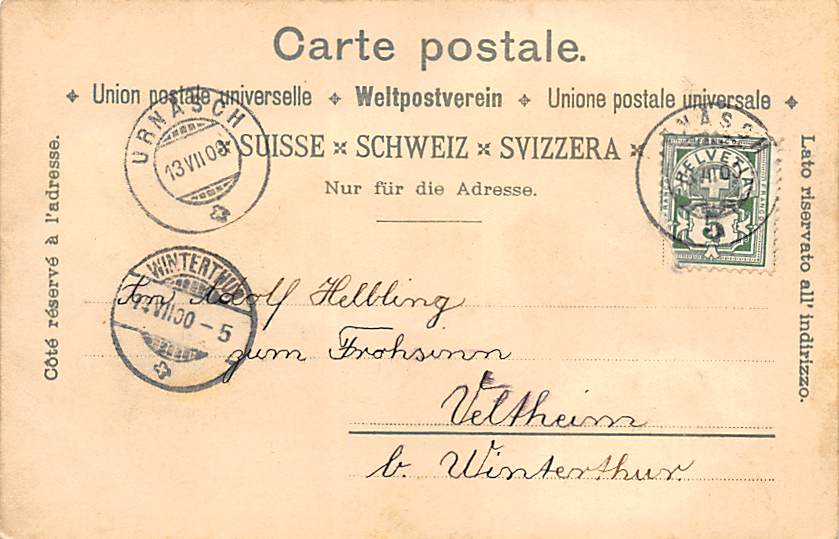 Carte postale.
Union postale universelle ✦ Weltpostverein ✦ Unione postale universale
SUISSE × SCHWEIZ × SVIZZERA
Nur für die Adresse.
Côté réservé à l'adresse.
Lato riservato all' indirizzo.
URNÄSCH
13 VII 00
HELVETIA
FRANCO
5
WINTERTHUR
VII 00 - 5
Adolf Helbling
zum Frohsinn
Veltheim
b. Winterthur.